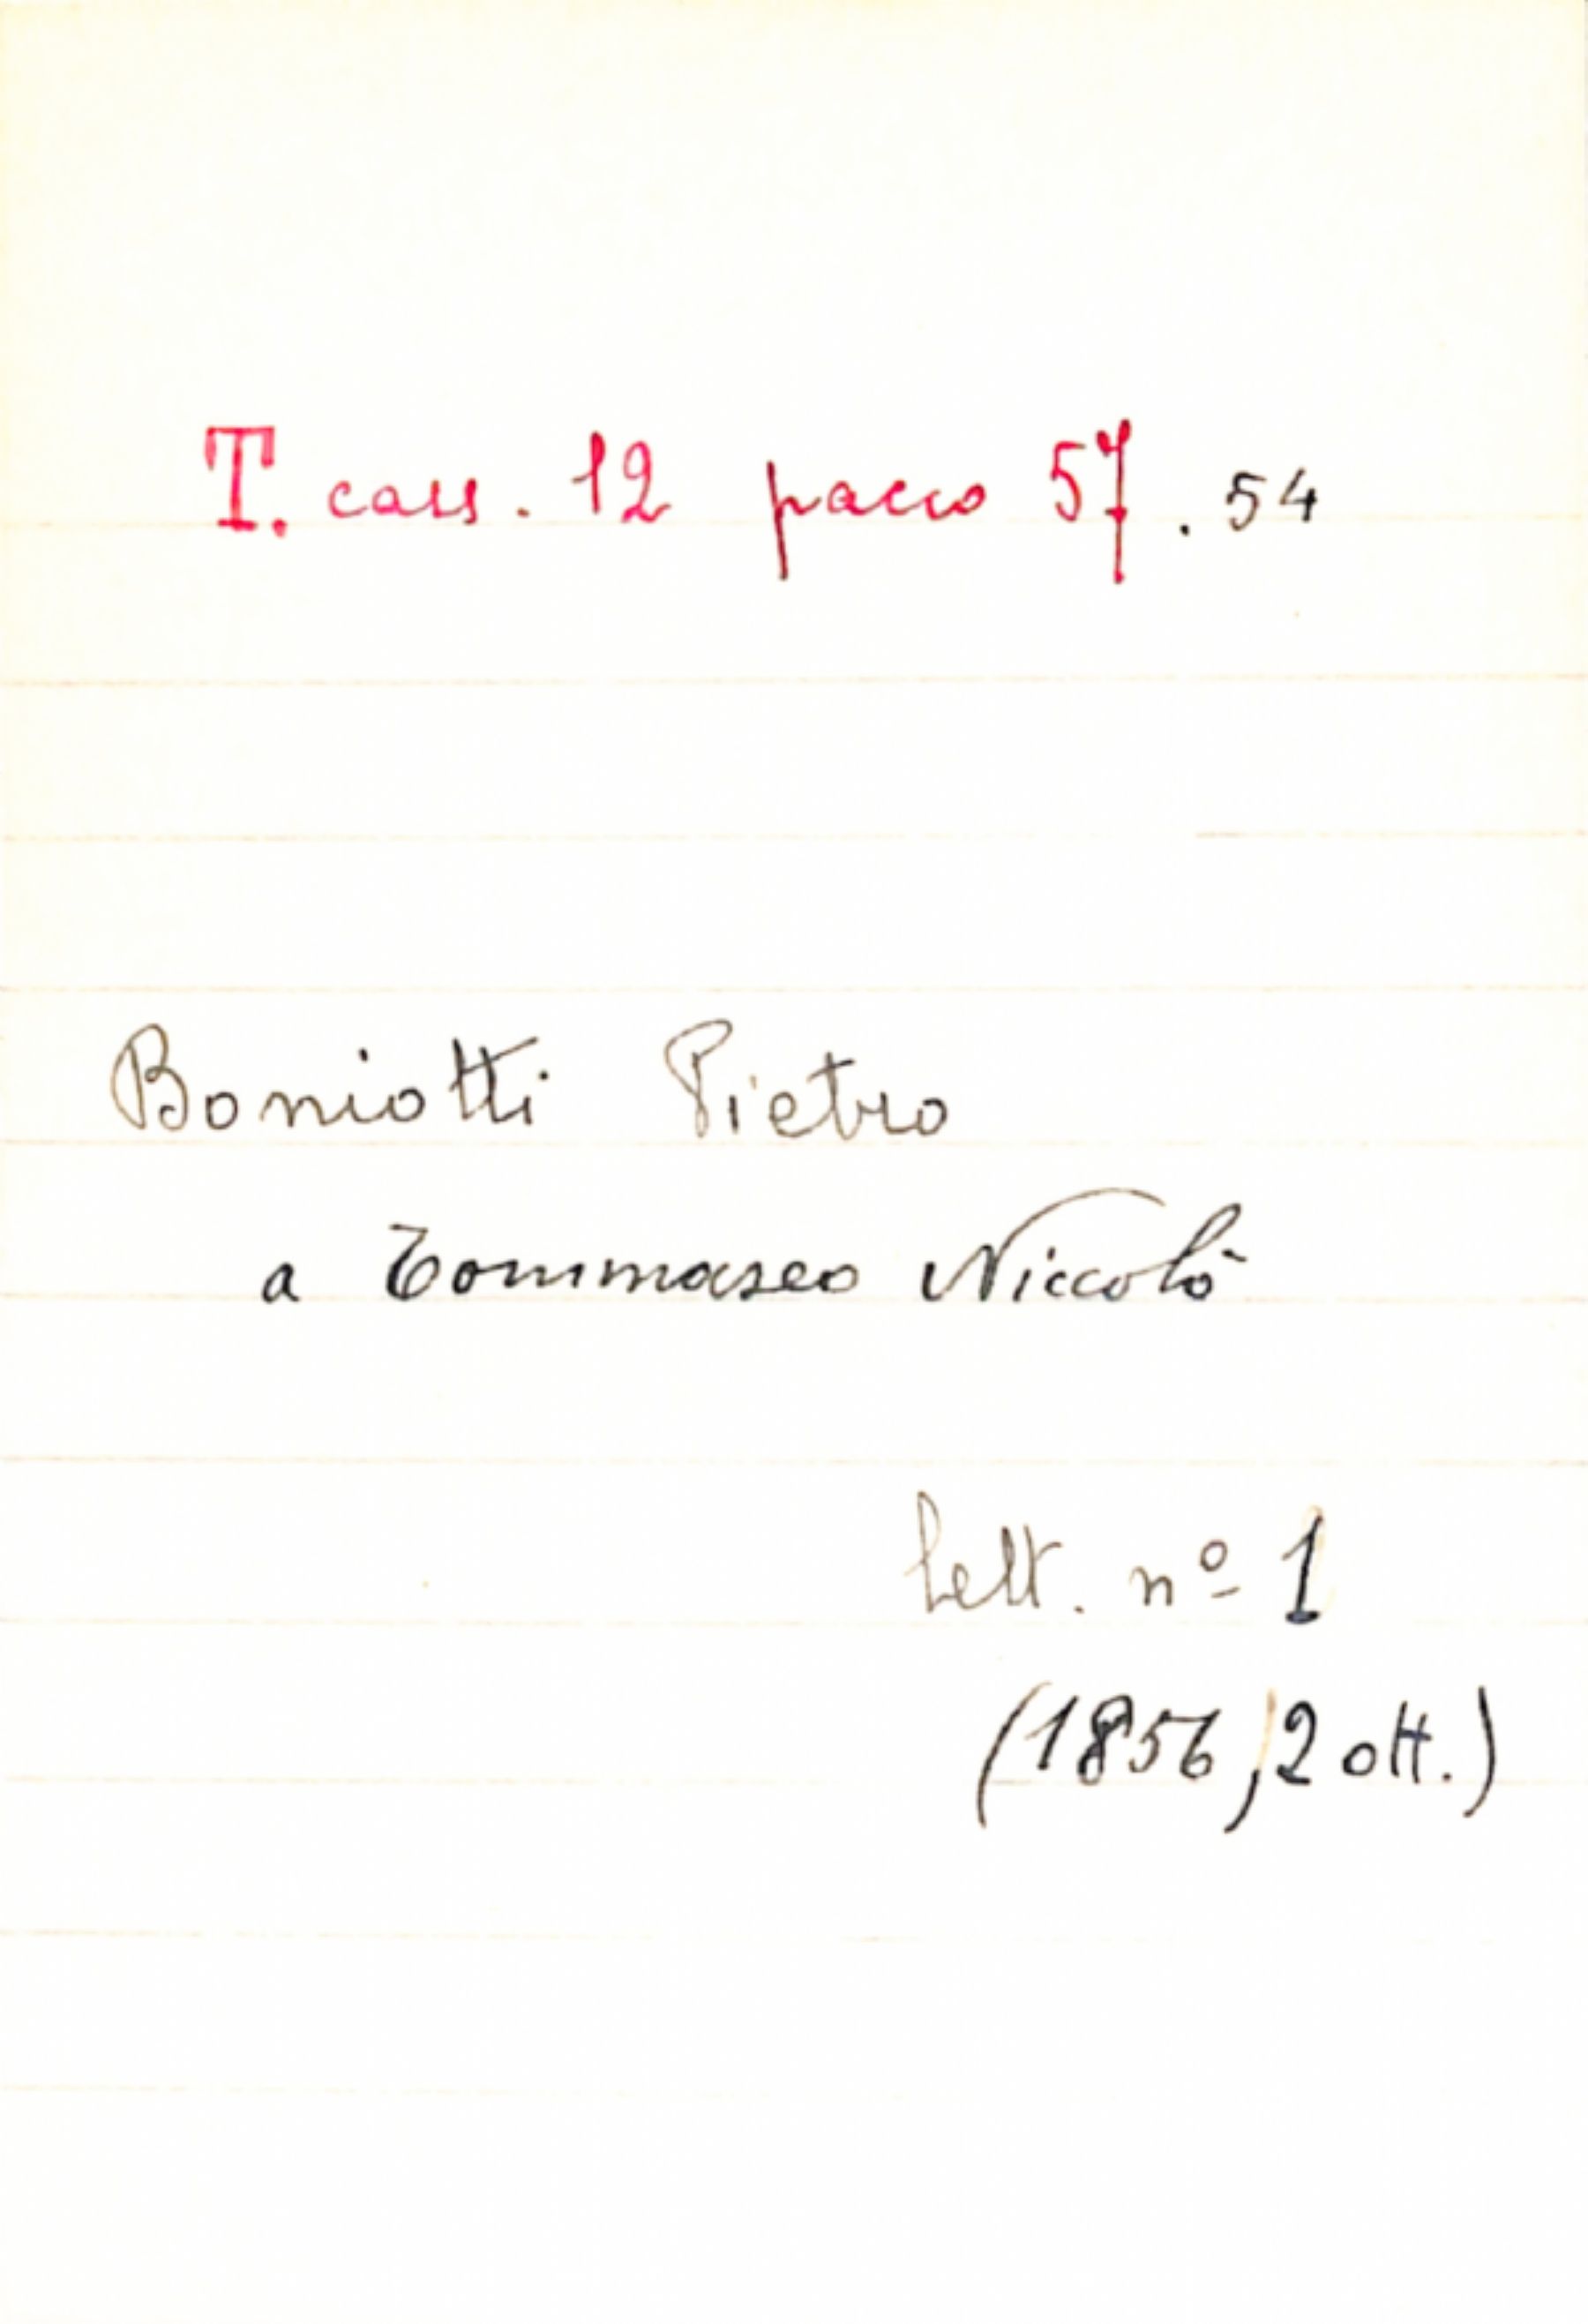 T. cass. 12 pacco 57. 54
Boniotti Pietro
a Tommaseo Niccolò
lett. nº 1
(1856, 2 ott.)